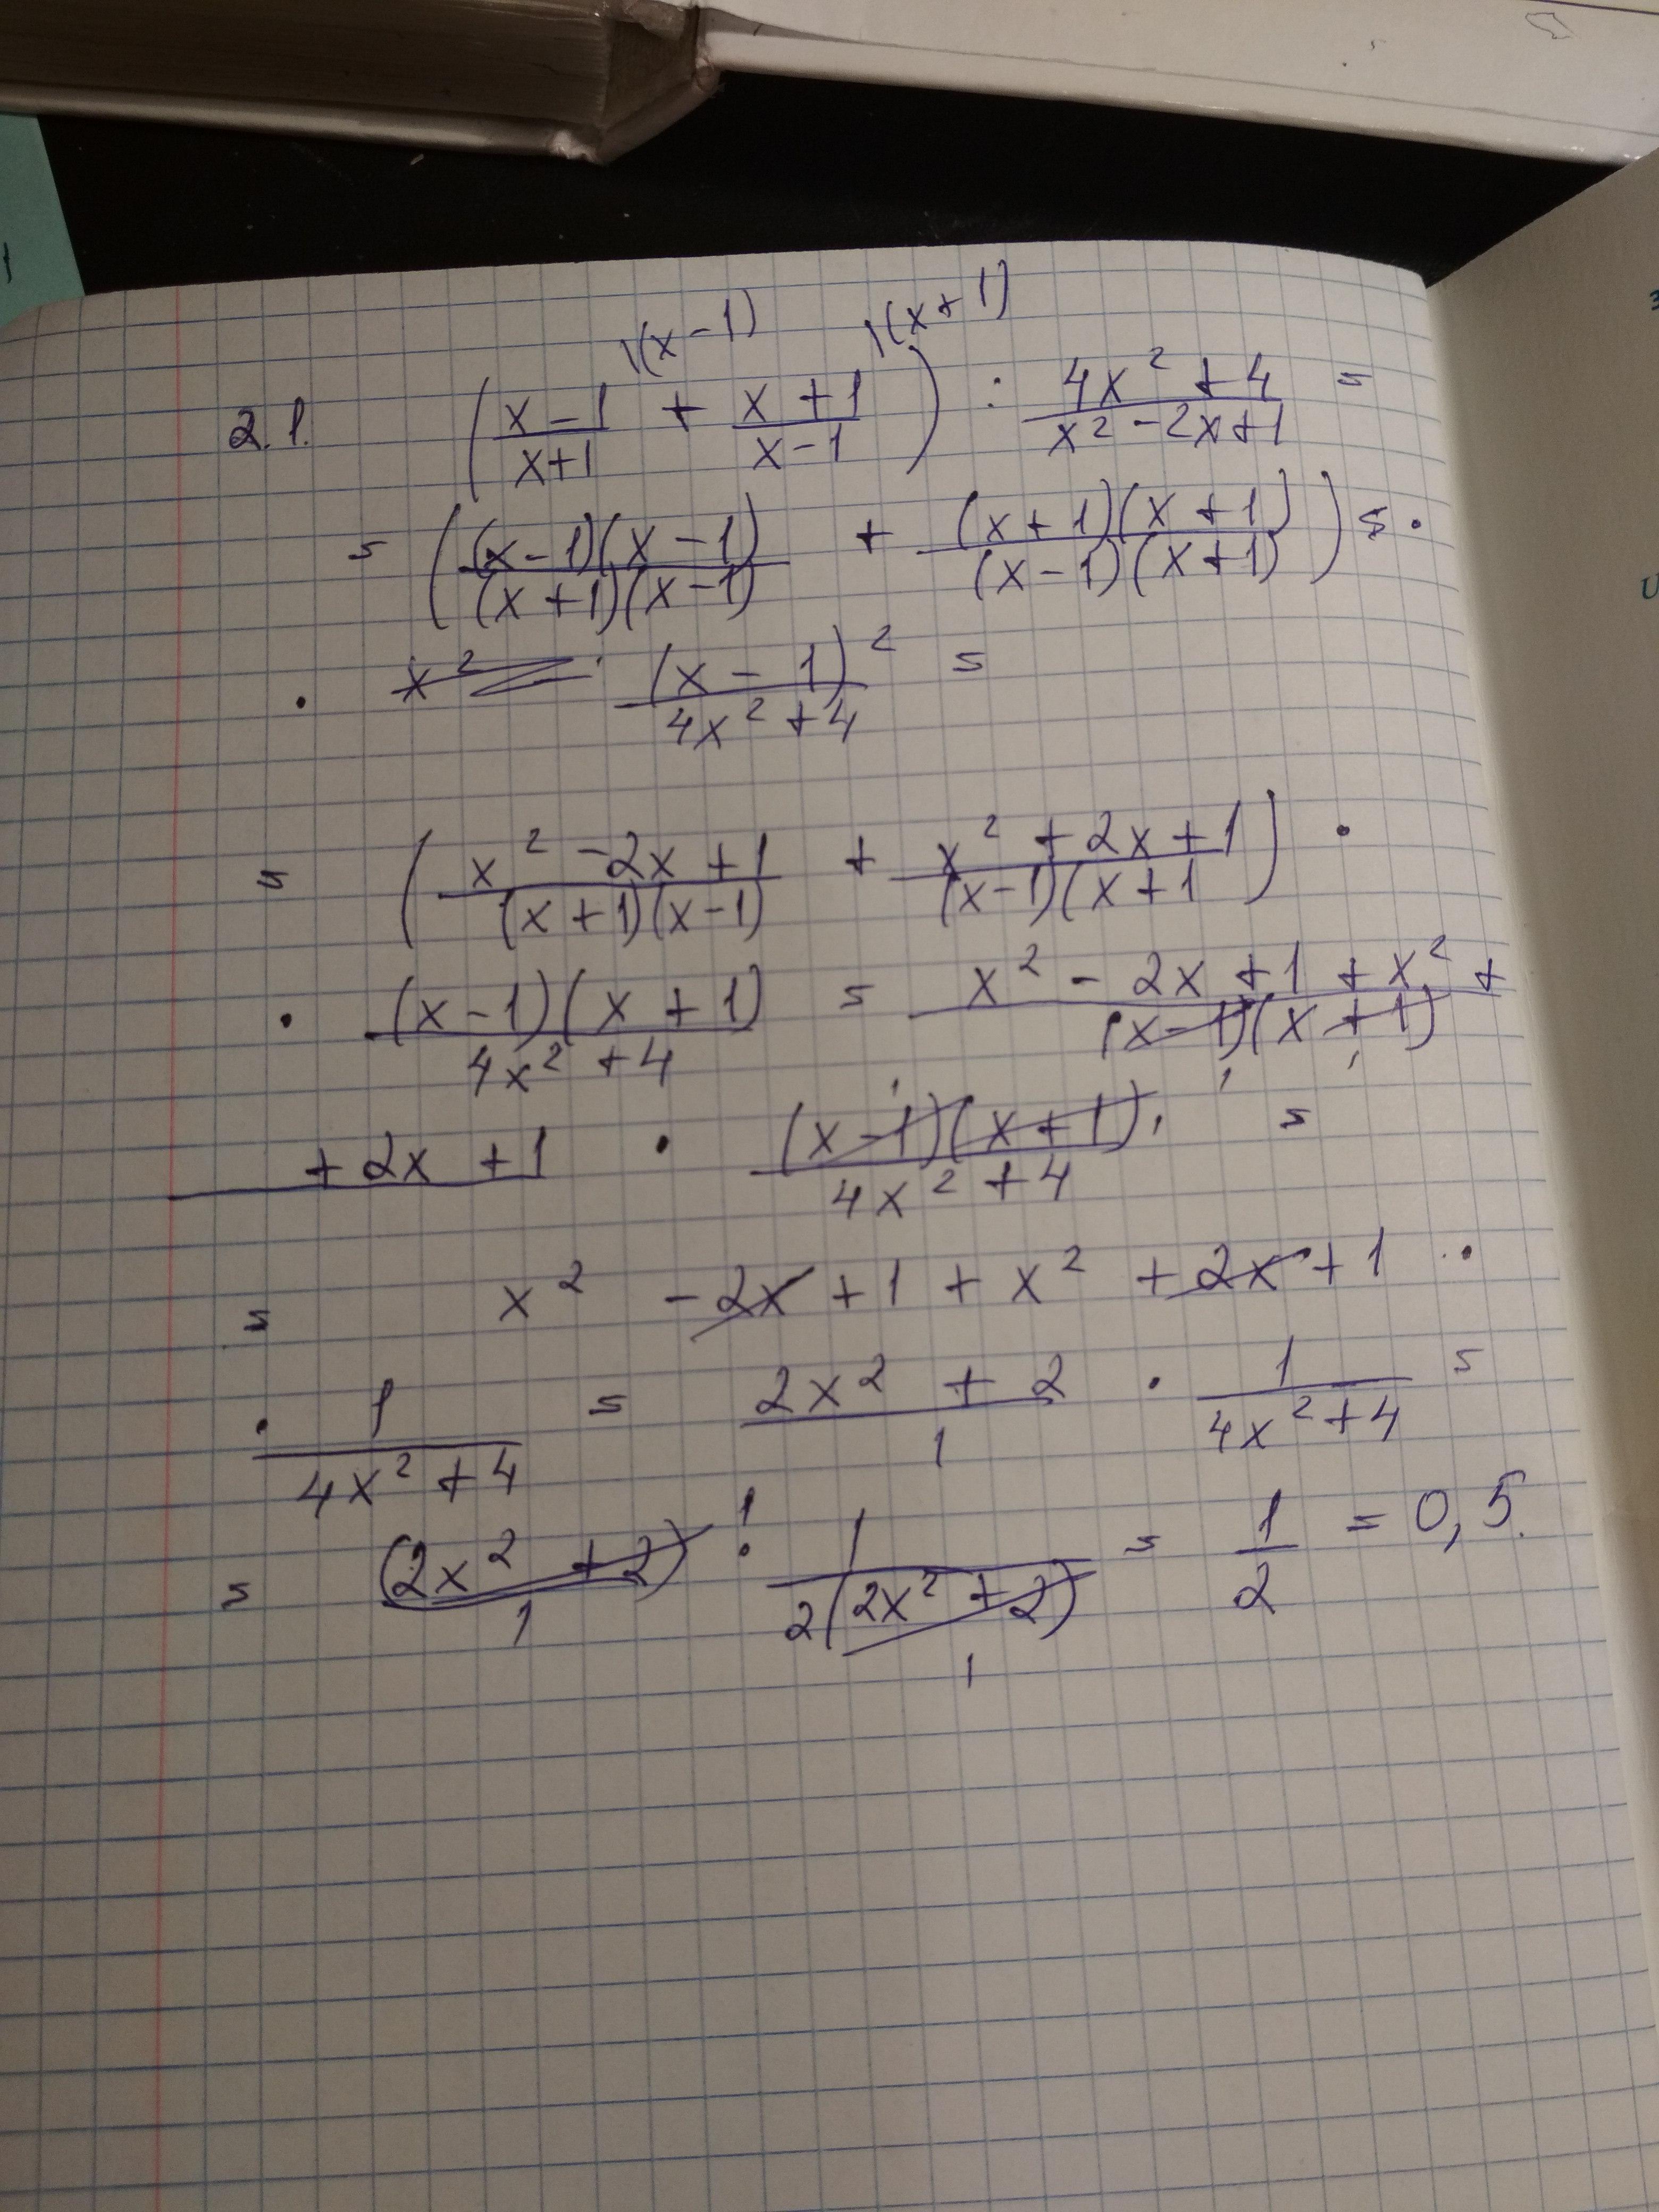 \(x-1) \(x+1)
2.1. ( (x-1)/(x+1) + (x+1)/(x-1) ) : (4x²+4)/(x²-2x+1) =
= ( (x-1)(x-1)/(x+1)(x-1) + (x+1)(x+1)/(x-1)(x+1) ) = ·
· (x-1)²/(4x²+4) =
= ( (x²-2x+1)/(x+1)(x-1) + (x²+2x+1)/(x-1)(x+1 ) ·
· (x-1)(x+1)/(4x²+4) = x²-2x+1+x²+/(x-1)(x+1)
+2x+1 · (x-1)(x+1)/(4x²+4) =
= x² -2x+1+x²+2x+1 ·
· 1/(4x²+4) = (2x²+2)/1 · 1/(4x²+4) =
= (2x²+2)/1 · 1/2(2x²+2) = 1/2 = 0,5.